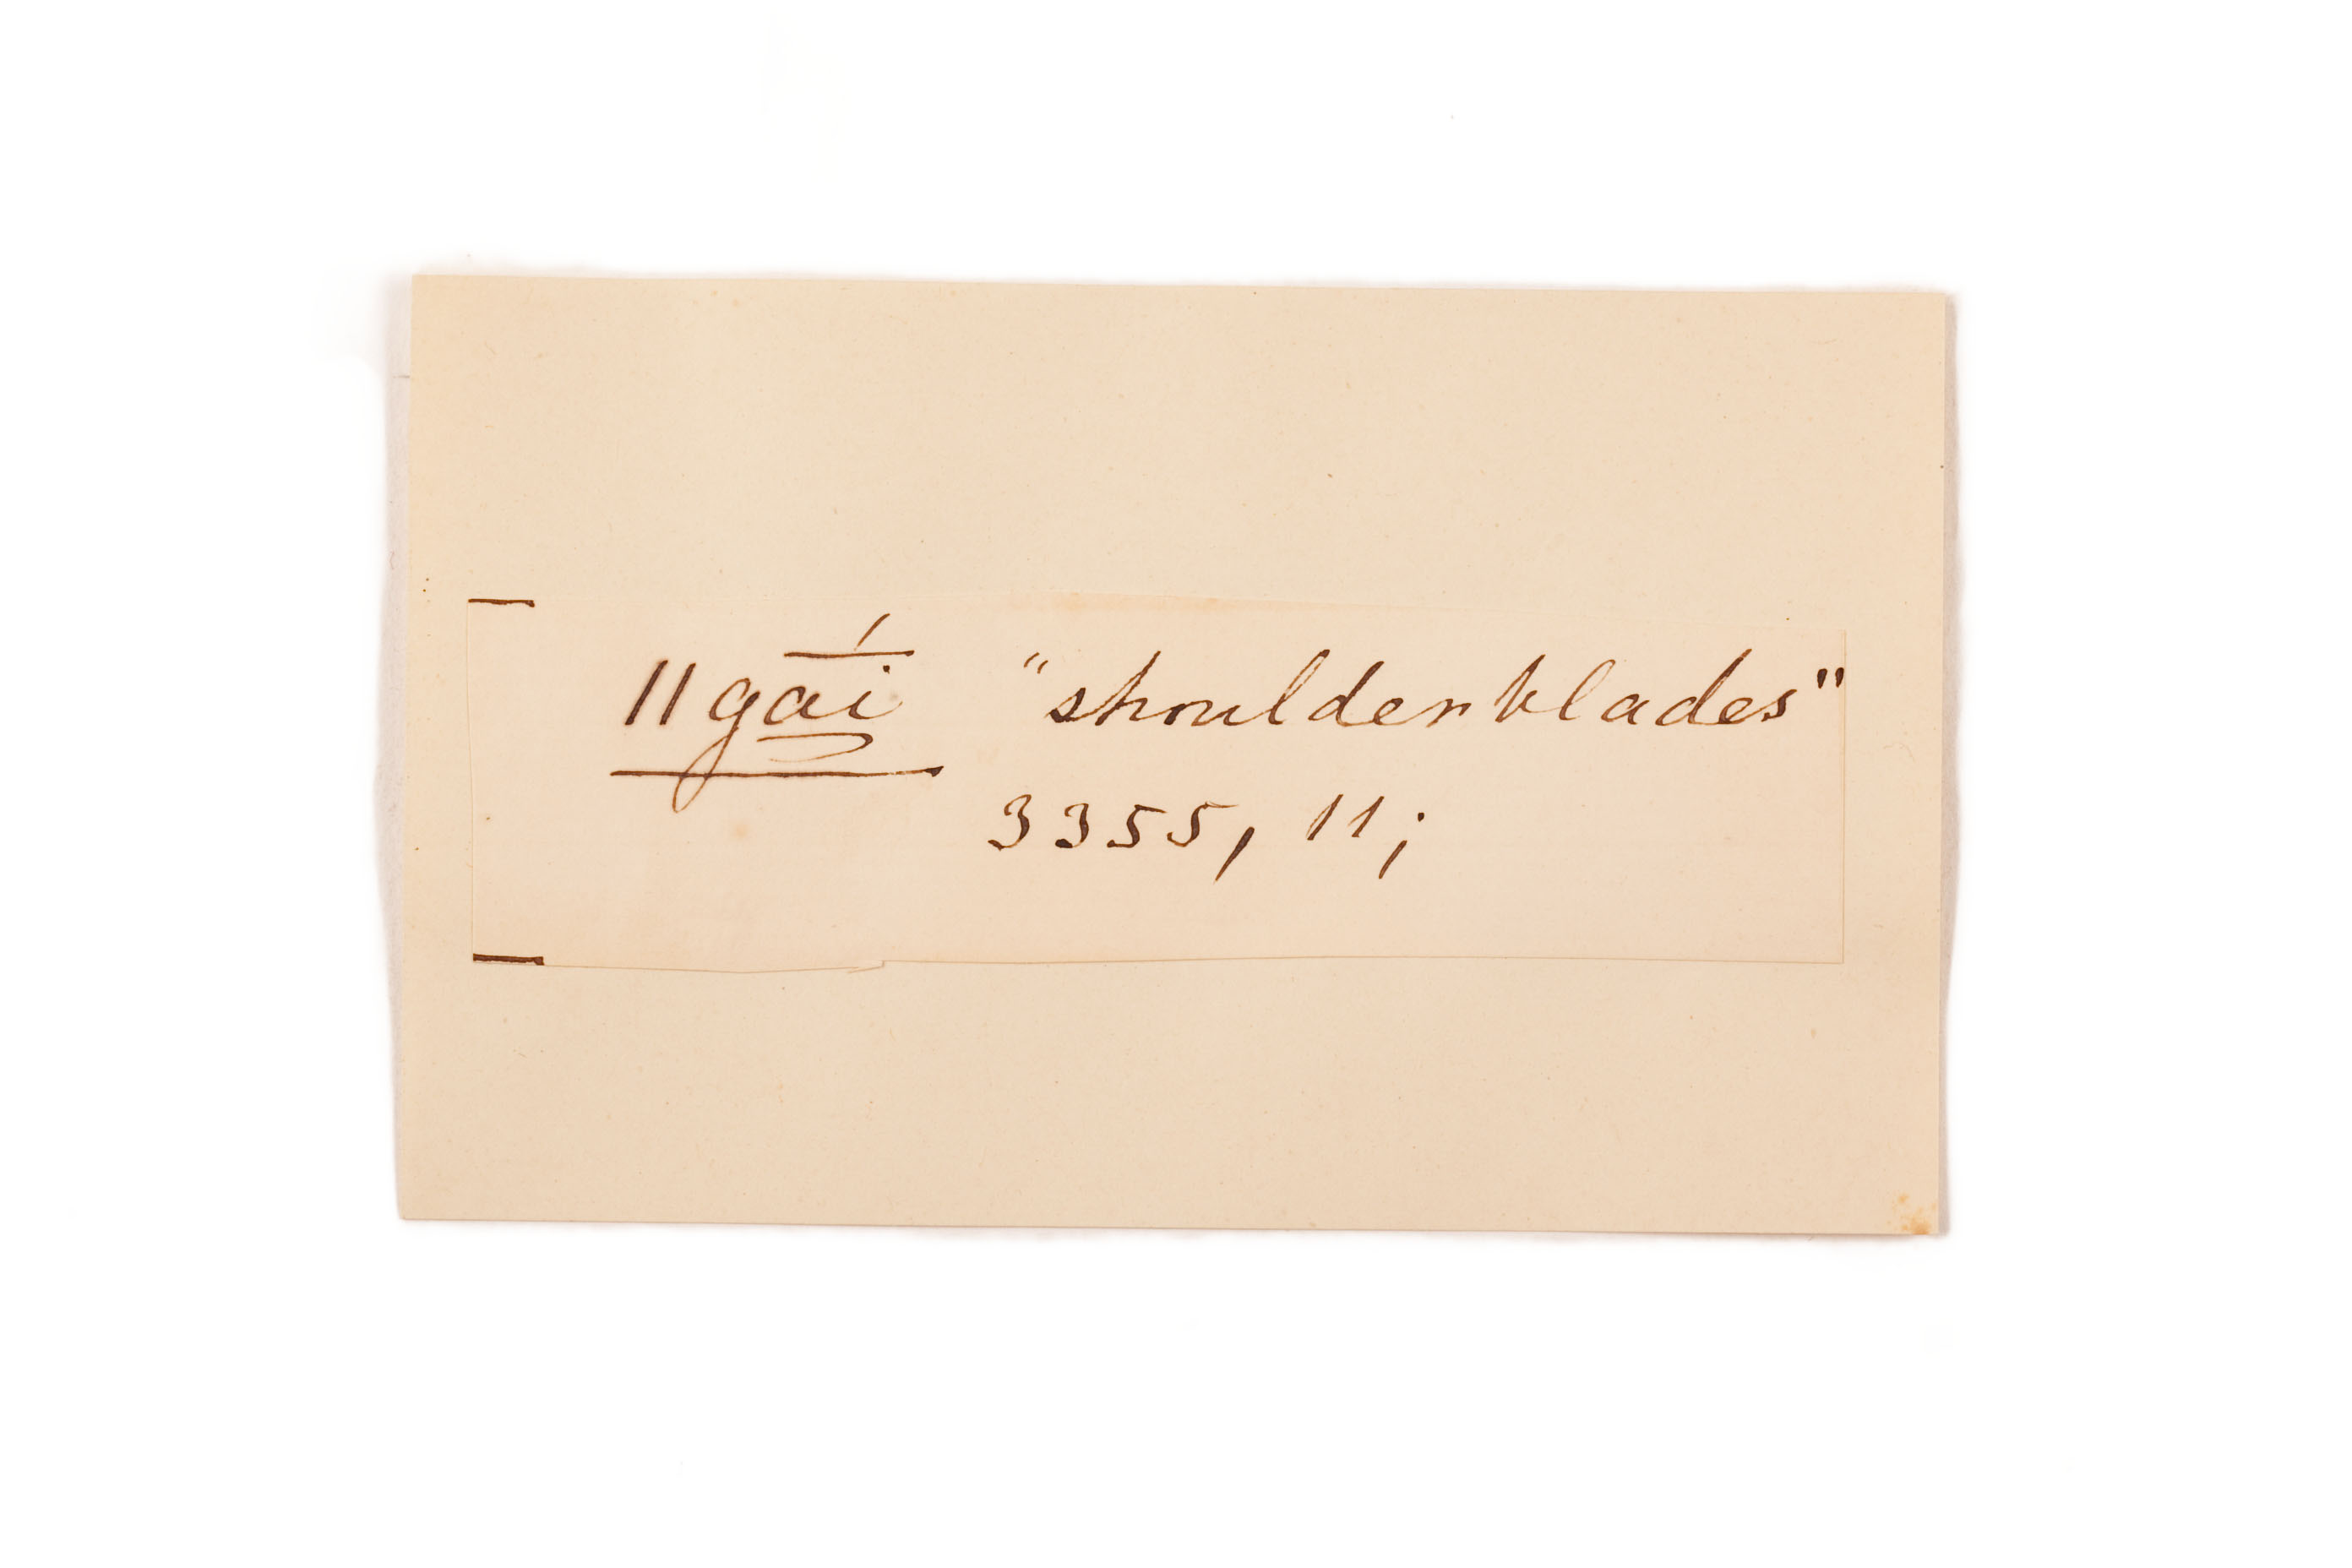 ǁgā́i̠ "shoulderblades"
3355, 11;